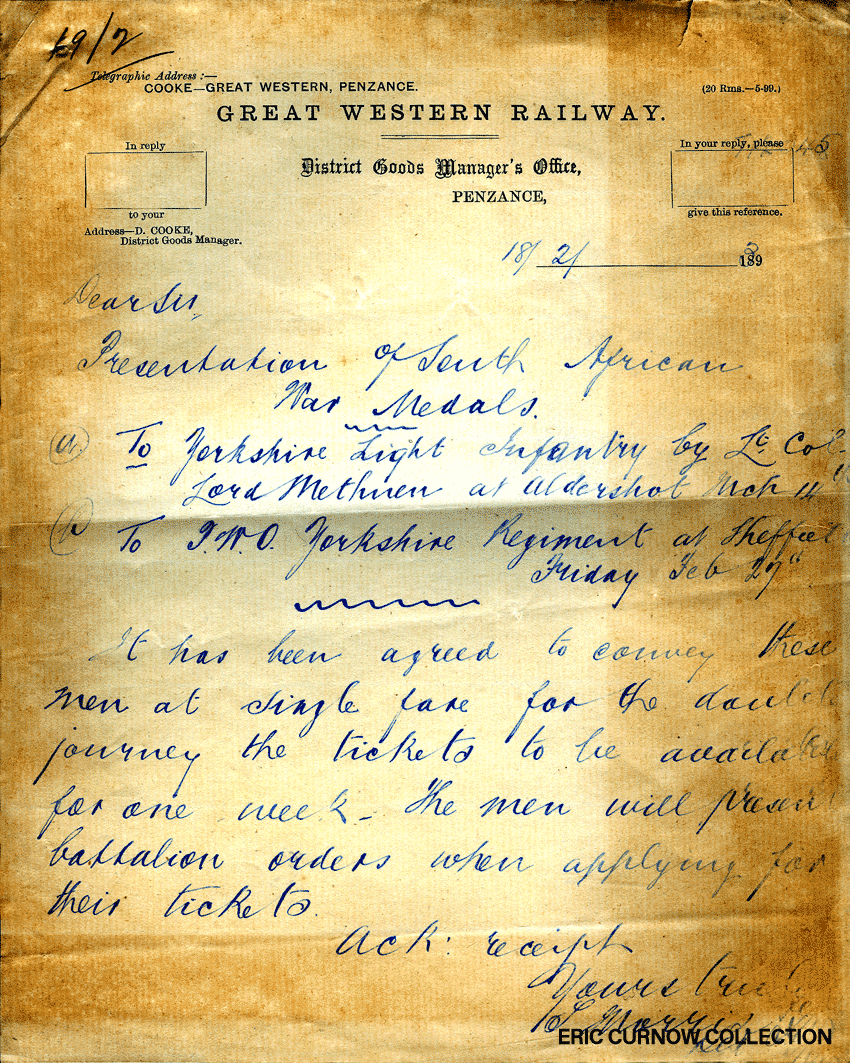 19/2
Telegraphic Address :—
COOKE—GREAT WESTERN, PENZANCE.
(20 Rms.—5-99.)
GREAT WESTERN RAILWAY.
In reply
to your
In your reply, please
give this reference.
District Goods Manager's Office,
PENZANCE,
Address—D. COOKE,
District Goods Manager.
18/2/ 189
Dear Sir,
Presentation of South African
War Medals.
(a) To Yorkshire Light Infantry by Lt Col
Lord Methuen at Aldershot Mch 14th
(b) To P.W.O. Yorkshire Regiment at Sheffiel
Friday Feb
It has been agreed to convey these
men at single fare for the double
journey the tickets to be available
for one week – the men will present
battalion orders when applying for
their tickets.
Ack: receipt
Yours truly
ERIC CURNOW COLLECTION